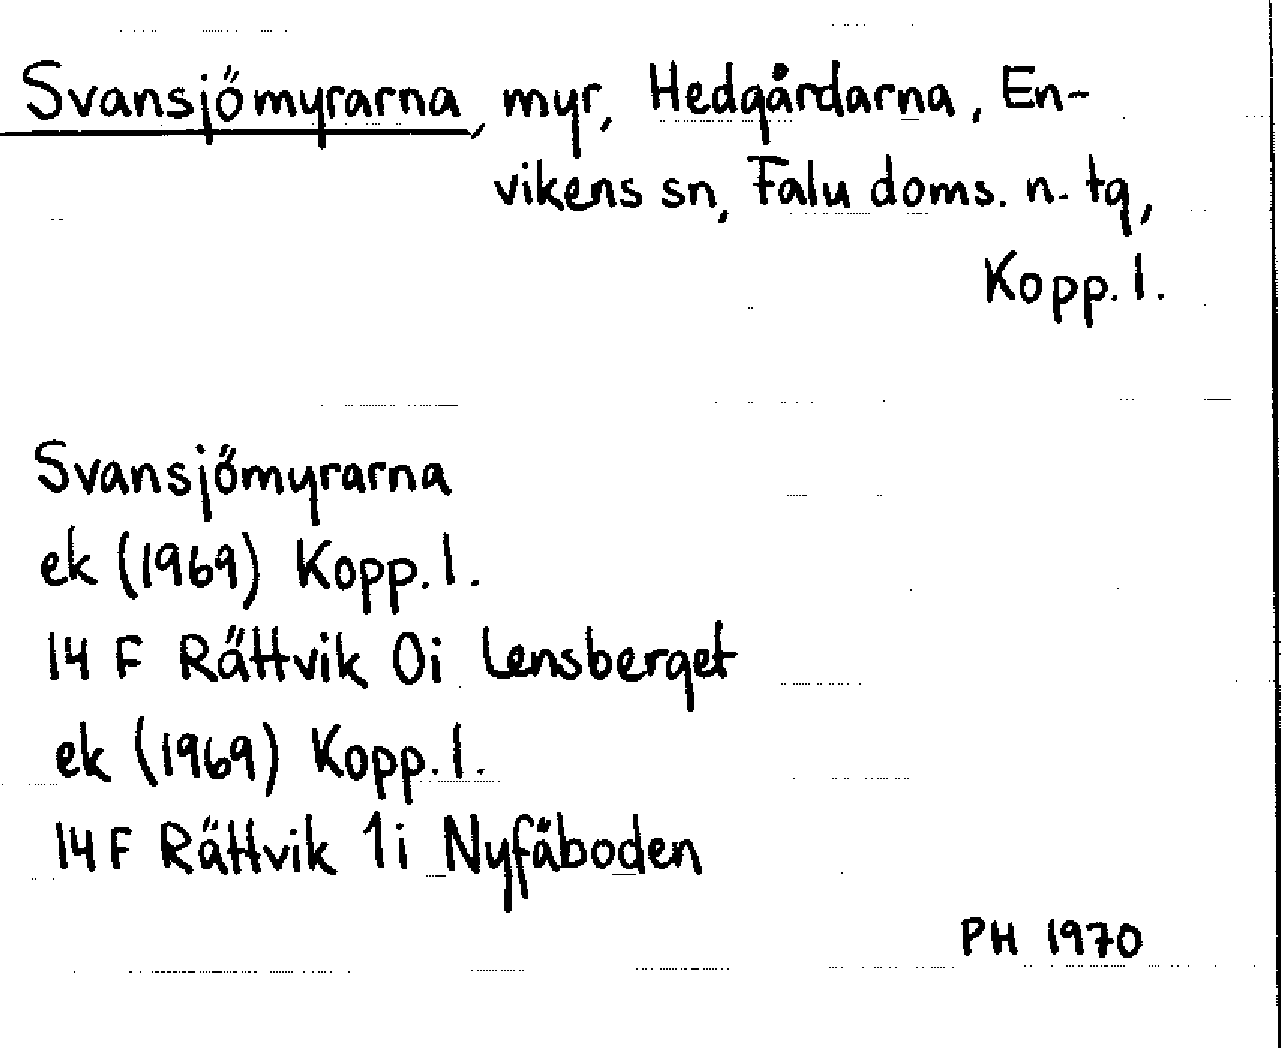 Svansjömyrarna, myr, Hedgårdarna, En-
vikens sn, Falu doms. n. tg,
Kopp. l.
Svansjömyrarna
ek (1969) Kopp. l.
14 F Rättvik 0i Lensberget
ek (1969) Kopp. l.
14 F Rättvik 1i Nyfäboden
PH 1970